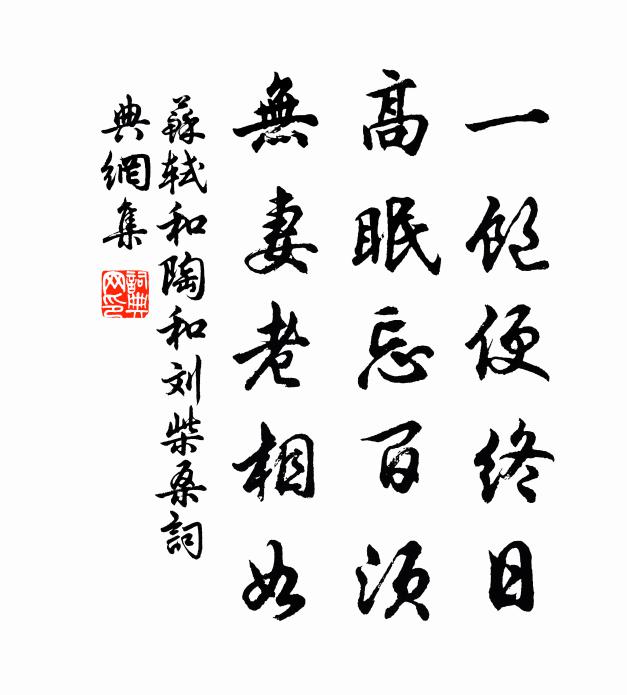 一飽便終日
高眠忘百須
無妻老相如
蘇軾和陶和刘柴桑詞
典網集
詞典
网印